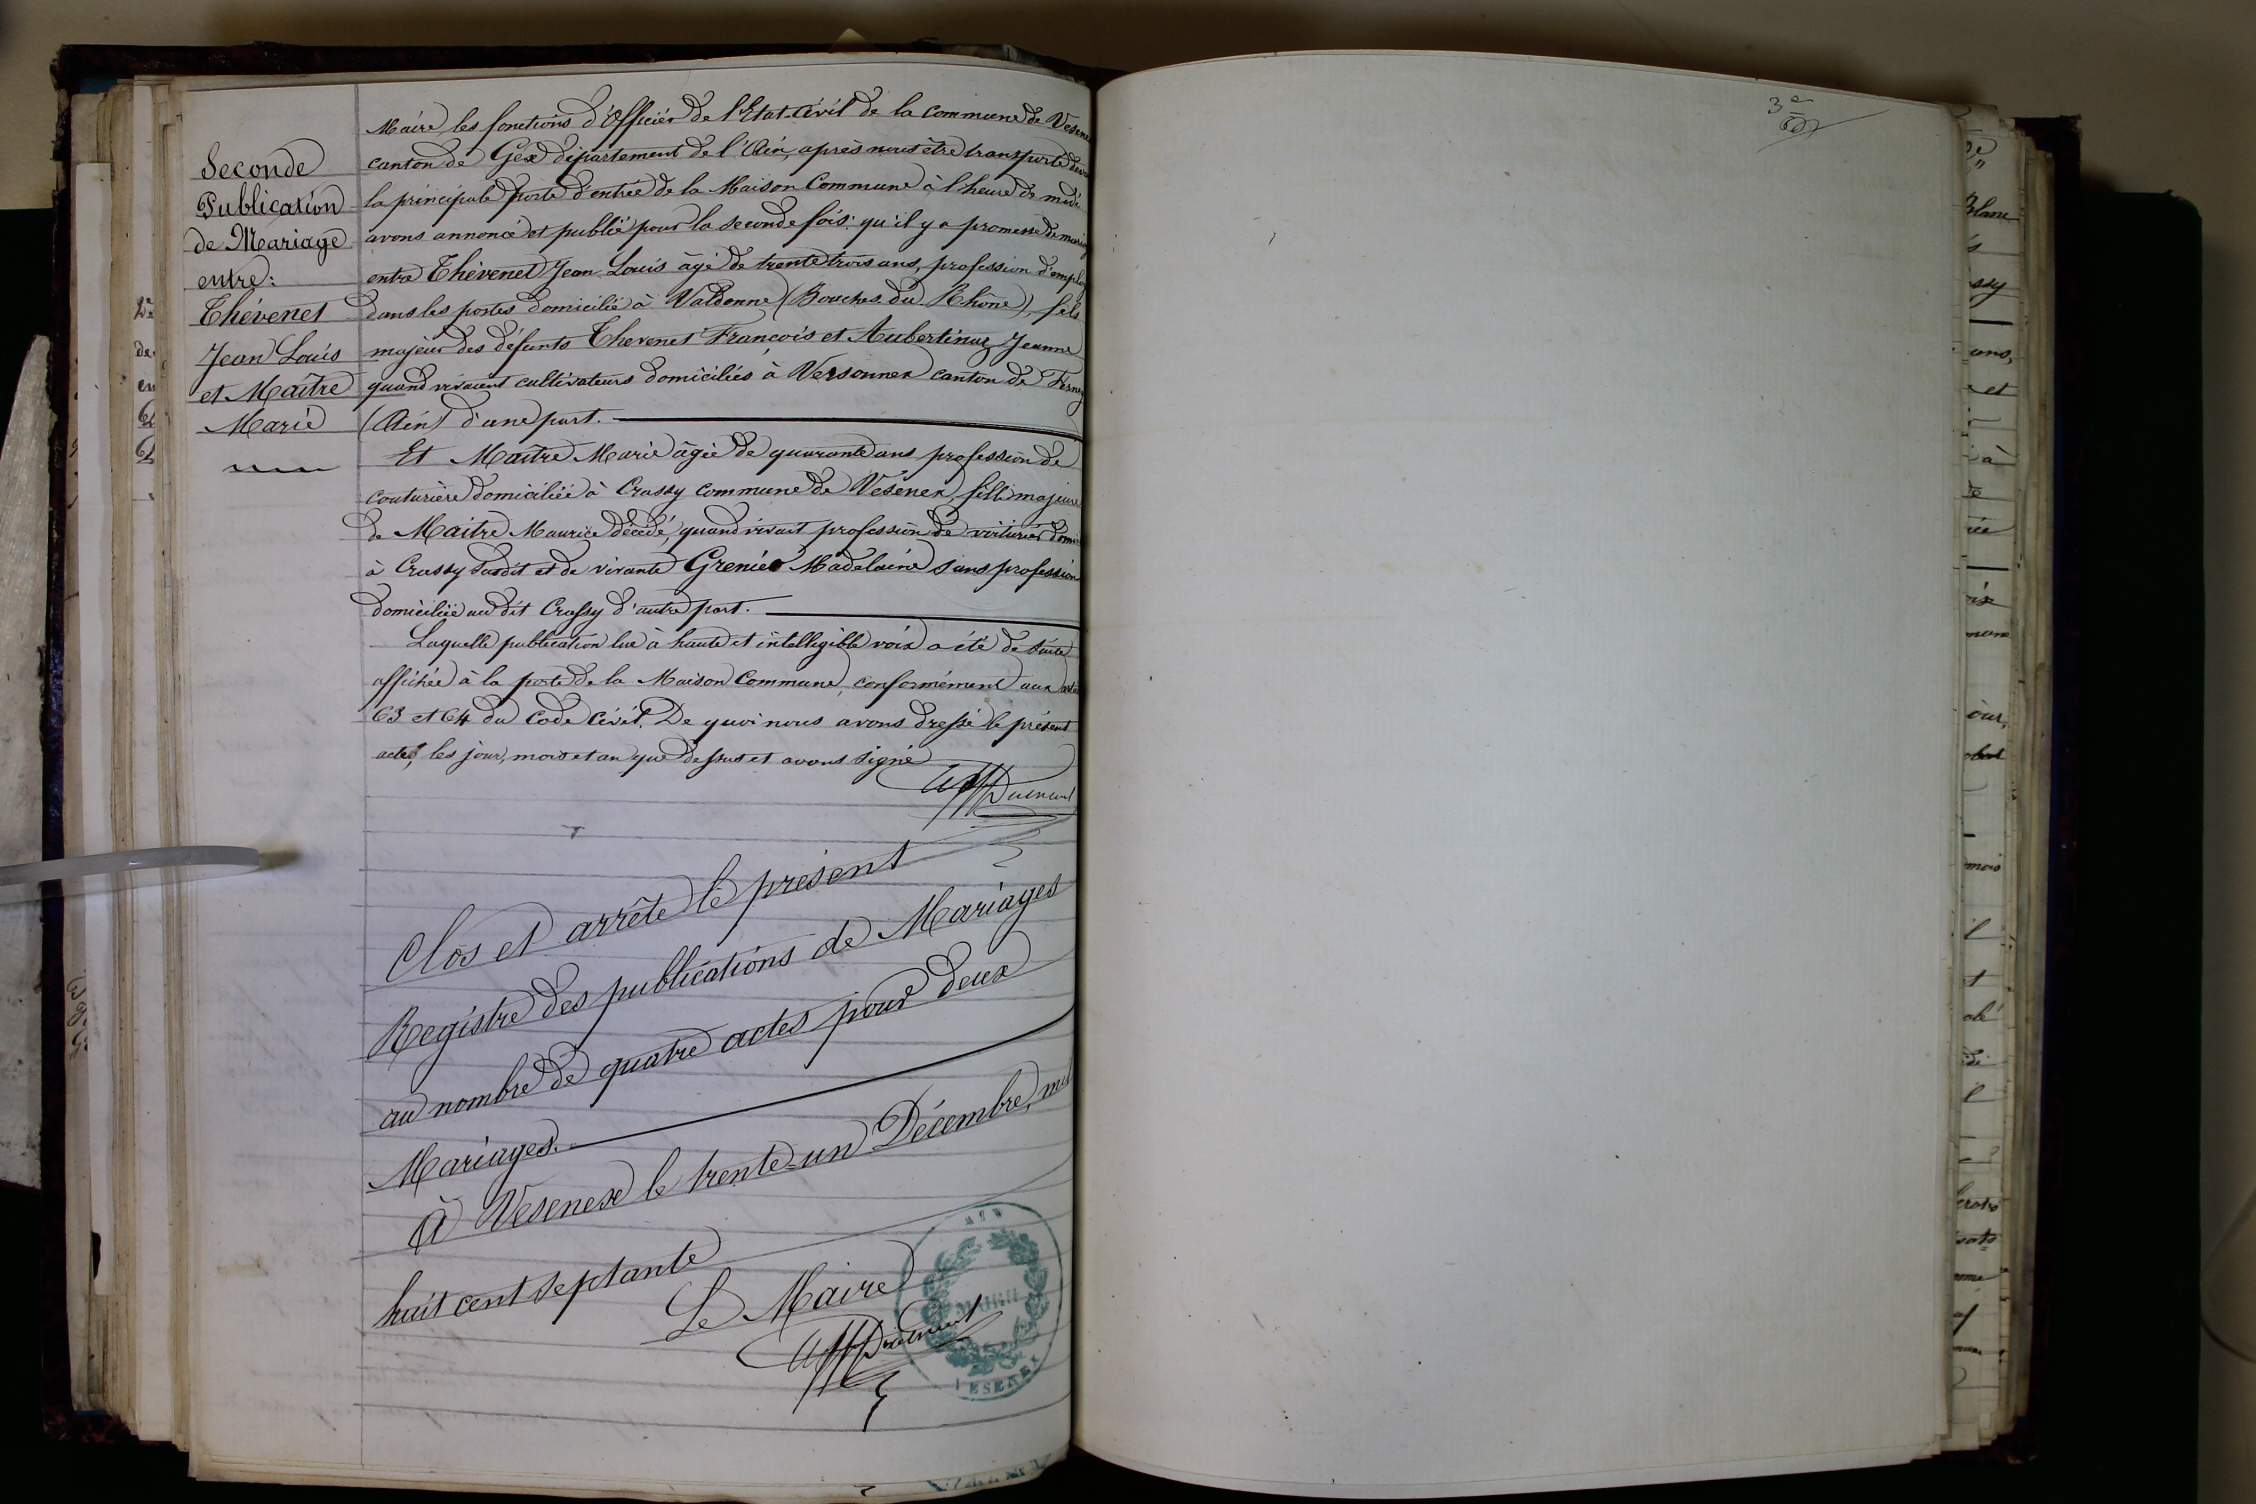 Seconde
Publication
de Mariage
entre:
Thévenet
Jean Louis
et Maître
Marie
Maire, les fonctions d'Officier de l'Etat-Civil de la commune de Vesenex
canton de Gex département de l'Ain, après nous être transporté
la principale porte d'entrée de la Maison Commune à l'heure de midi
avons annoncé et publié pour la seconde fois: qu'il y a promesse de
entre Thévenet Jean Louis âgé de trente trois ans, profession
dans les postes domicilié à Valdonne (Bouches du Rhône), fils
majeur des défunts Thevenet François et Jeanne
quand vivaient cultivateurs domiciliés à Versonnex canton de Ferney
(Ain) d'une part.
Et Maître Marie âgée de quarante ans profession de
couturière domiciliée à Crassy commune de Vésenex, fille majeure
de Maitre Maurice décédé, quand vivait profession de voiturier
à Crassy susdit et de vivante Grenier Madelaine sans profession
domiciliée au dit Crassy d'autre part.
Laquelle publication lue à haute et intelligible voix a été de suite
affichée à la porte de la Maison Commune, conformément aux
63 et 64 du Code Civil. De quoi nous avons dressé le présent
acte, les jour, mois et an que dessus et avons signé
Clos et arrête le présent
Registre des publications de Mariages
au nombre de quatre actes pour deux
Mariages.
à Vesenex le trente-un Décembre, mil
huit cent septante
Le Maire
AIN
MAIRIE
VESENEX
3e